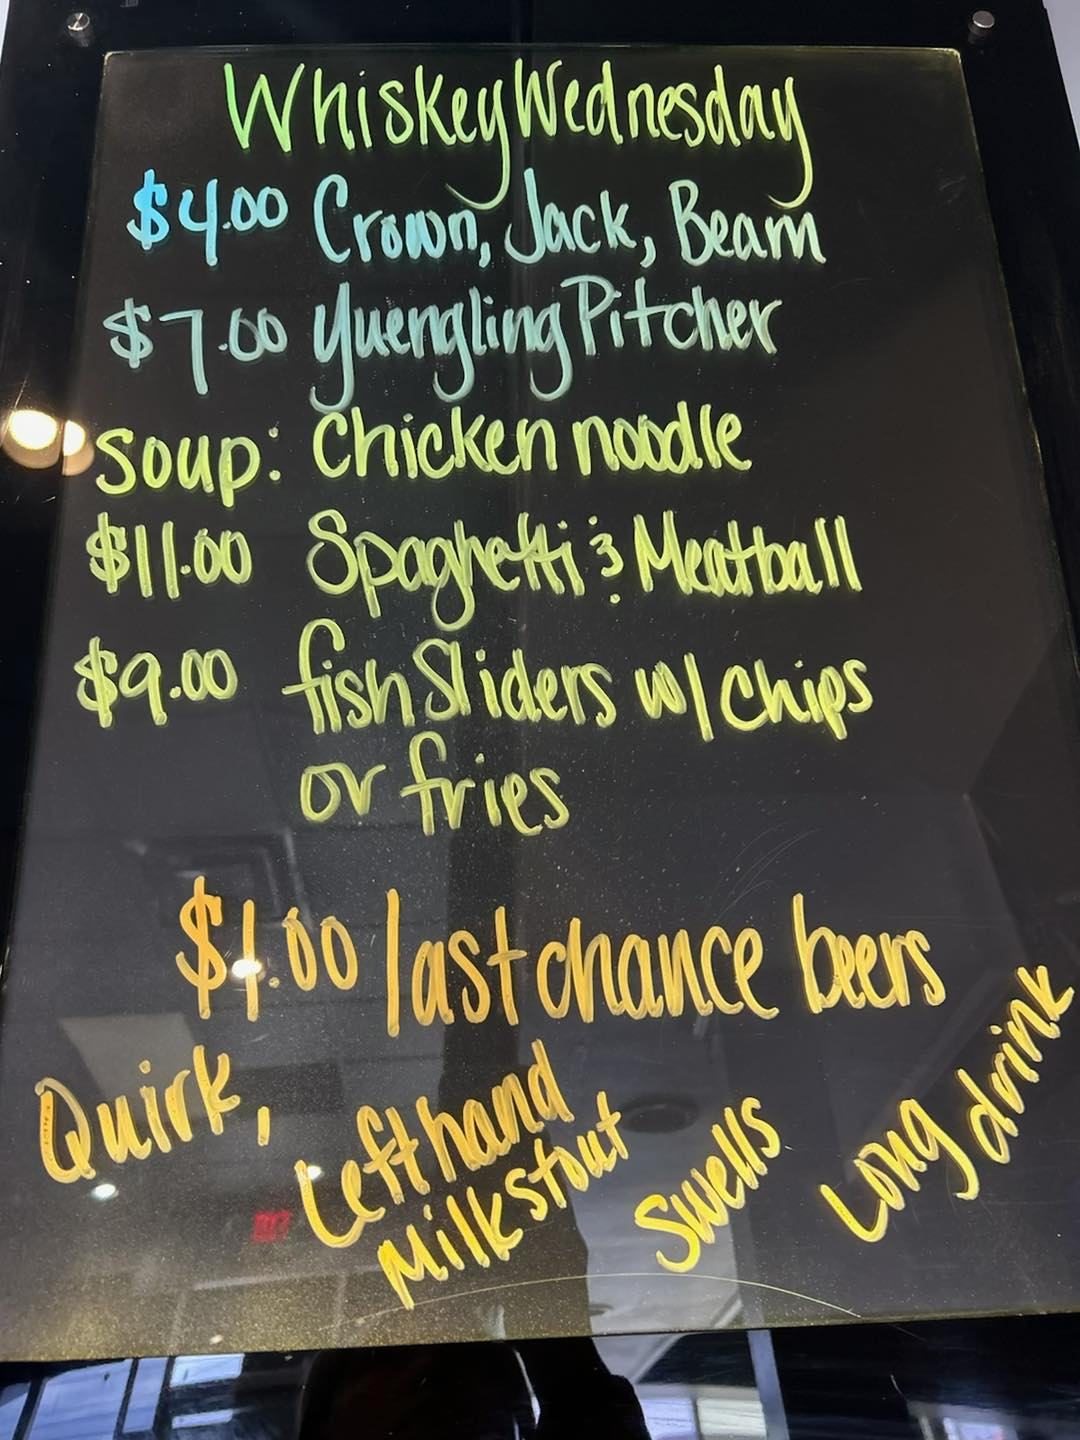 Whiskey Wednesday
$4.00 Crown, Jack, Beam
$7.00 Yuengling Pitcher
Soup: Chicken noodle
$11.00 Spaghetti & Meatball
$9.00 fish Sliders w/ chips
or fries
$1.00 last chance beers
Quirk,
Left hand
Milk stout
Swells
Long drink